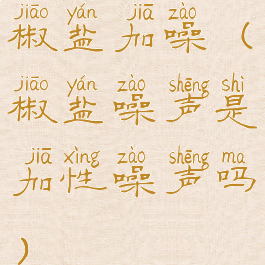 jiāo yán jiā zào
椒盐 加噪 (
jiāo yán zào shēng shì
椒盐噪声是
jiā xìng zào shēng ma
加性噪声吗
)